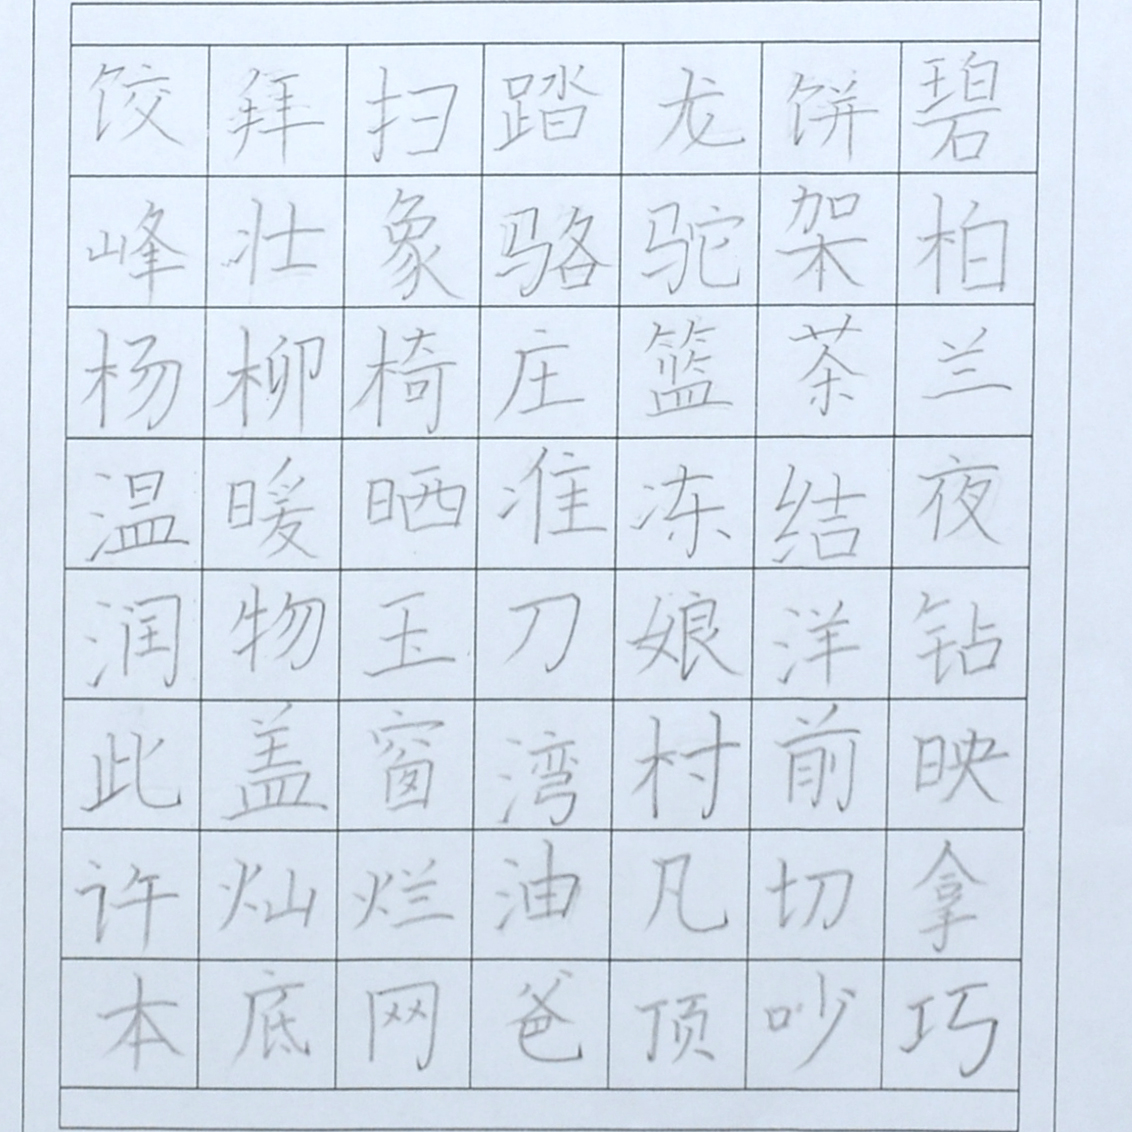 饺拜扫踏龙饼碧
峰壮象骆驼架柏
杨柳椅庄篮茶兰
温暖晒准冻结夜
润物玉刀娘洋钻
此盖窗湾村前映
许灿烂油凡切拿
本底网爸顶吵巧